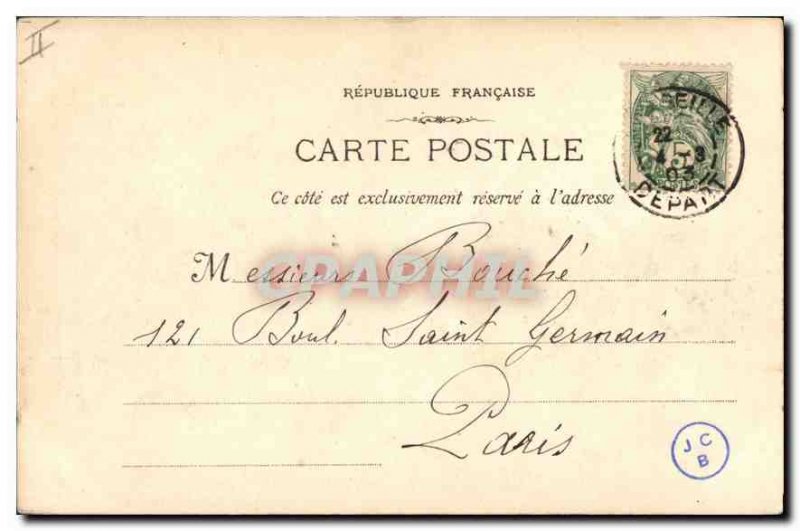 II
RÉPUBLIQUE FRANÇAISE
CARTE POSTALE
Ce côté est exclusivement réservé à l'adresse
SEILLE
22
5
03
DEPART
Messieurs Bouché
CPAPHIL
121 Boul. Saint Germain
Paris
J C
B